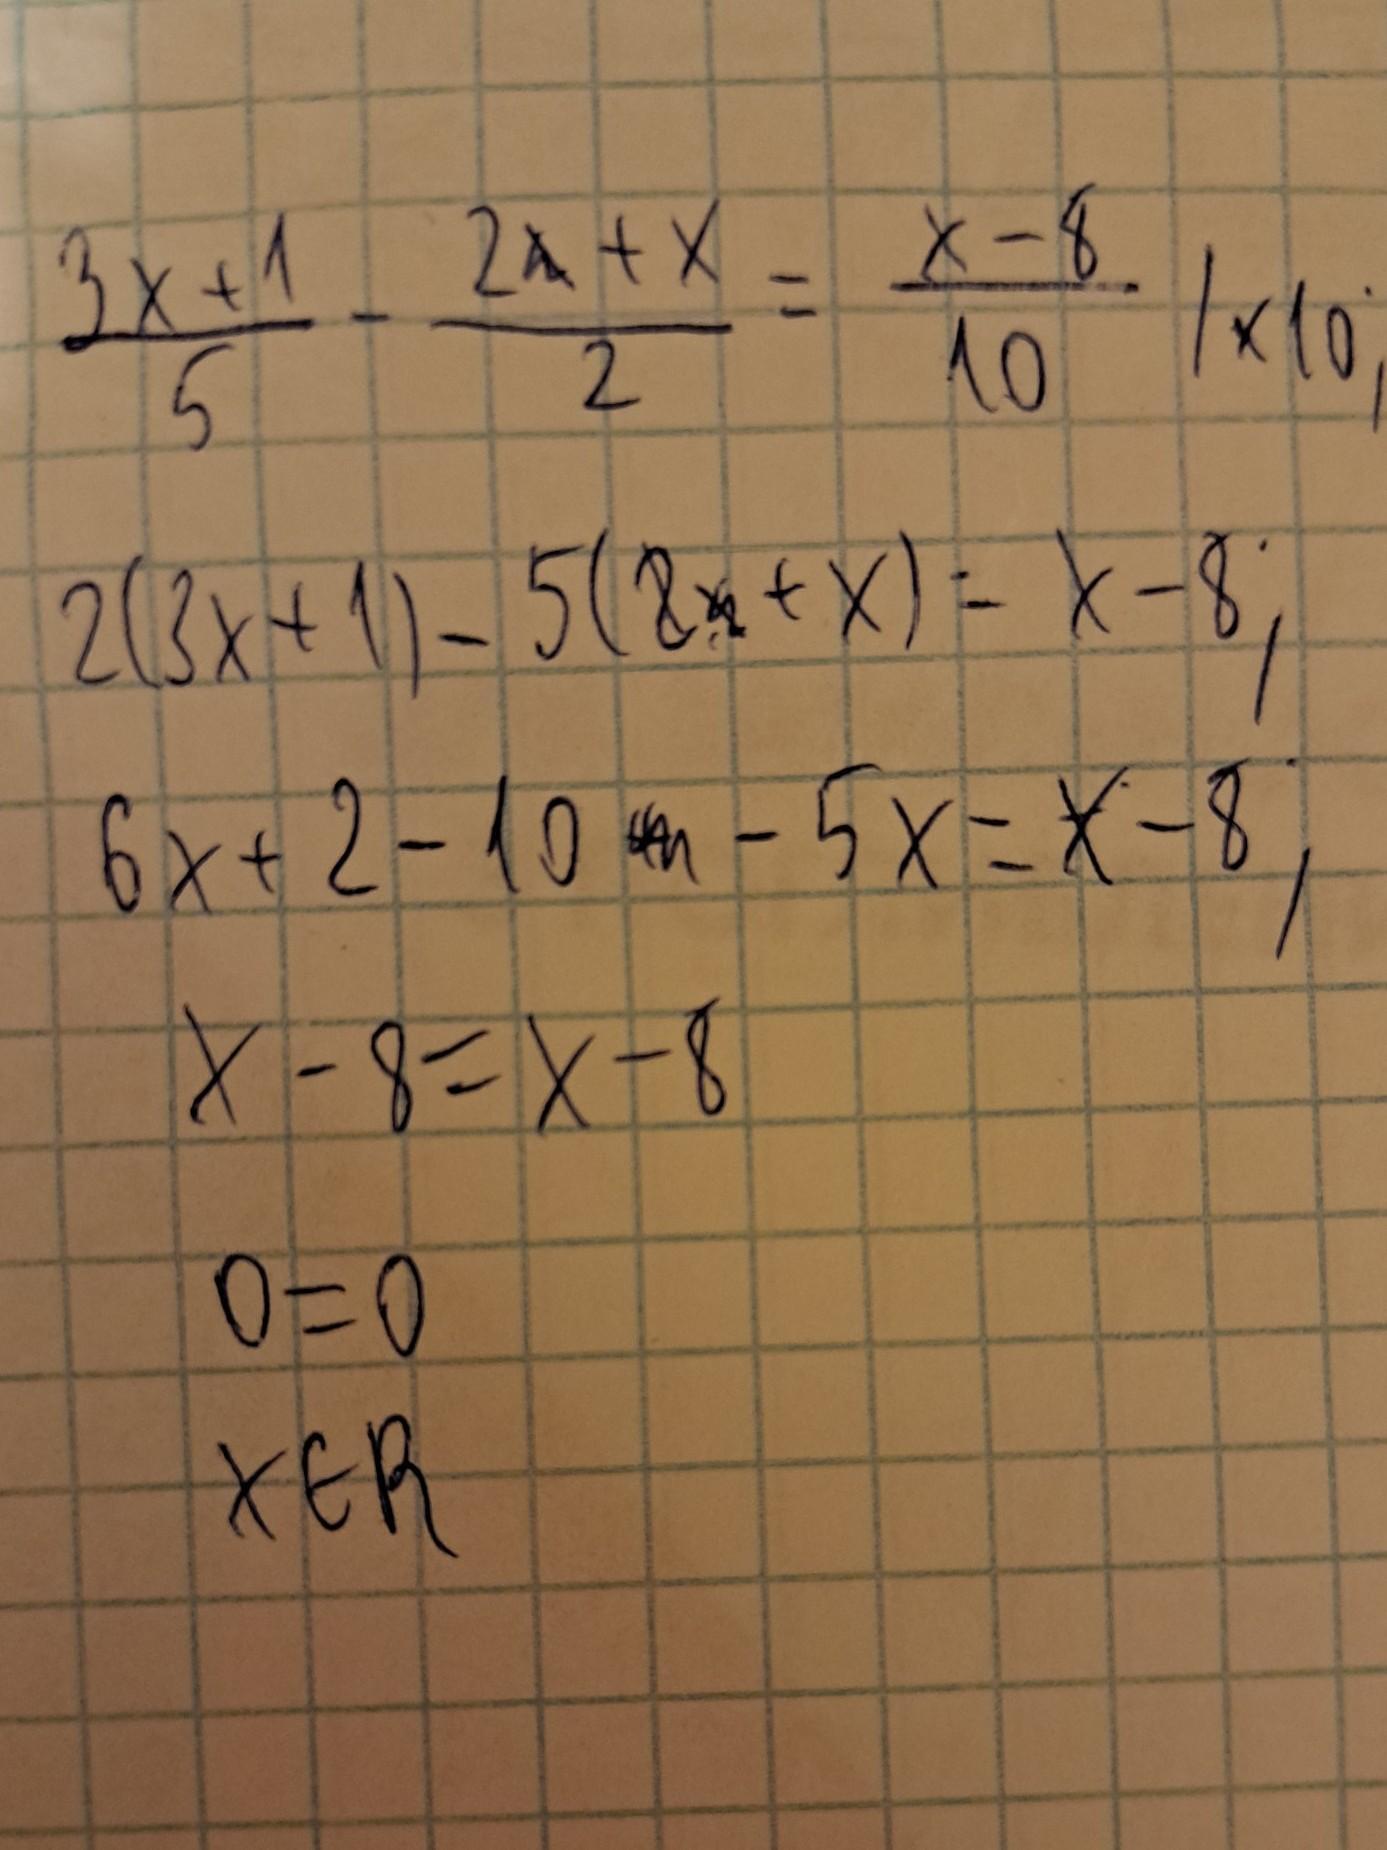 (3x+1)/5 - (2+x)/2 = (x-8)/10 / x10;
2(3x+1) - 5(2+x) = x-8;
6x+2-10-5x=x-8;
x-8=x-8
0=0
x∈R